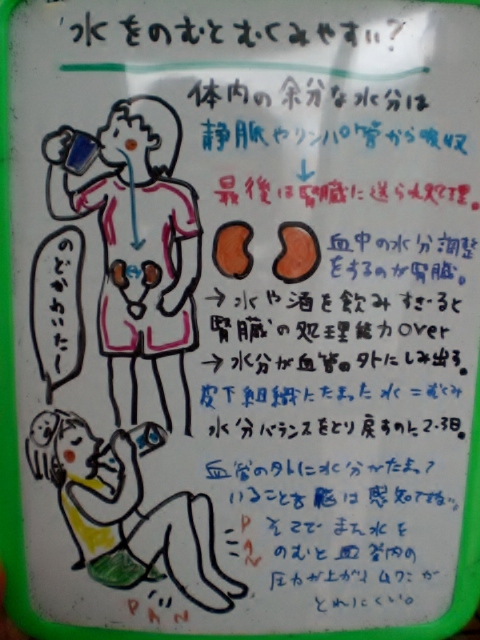 水をのむとむくみやすい?
体内の余分な水分は
静脈やリンパ管から吸収
↓
最後は腎臓に送られ処理。
血中の水分調整
をするのが腎臓。
→水や酒を飲みすぎると
腎臓の処理能力over
→水分が血管の外にしみ出る。
皮下組織にたまった水=むくみ
水分バランスをとり戻すのに2-3日。
のどかわいた〜
血管の外に水分がたまって
いることを脳は感知できない。
そこでまた水を
のむと血管内の
圧力が上がりムクミが
とれにくい。
PAN
PAN